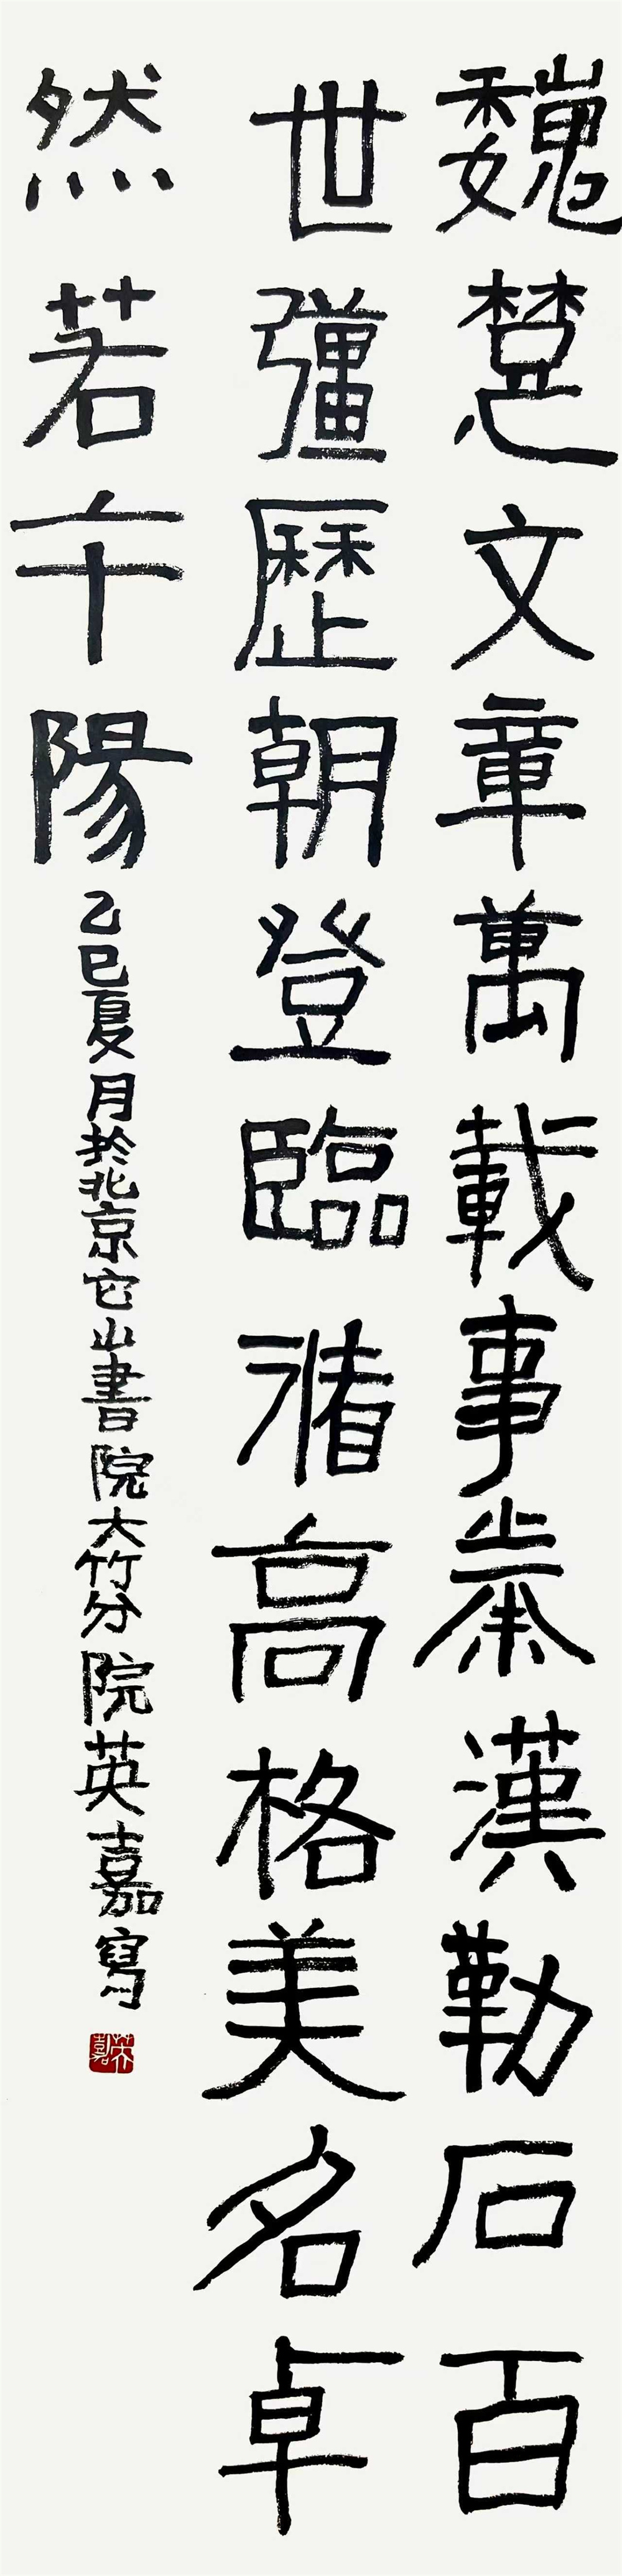 巍楚文章萬載事漢勒石百
世彊歷朝登臨高格美名卓
然若午陽
乙巳夏月於北京它山書院大竹分院英嘉寫
英嘉